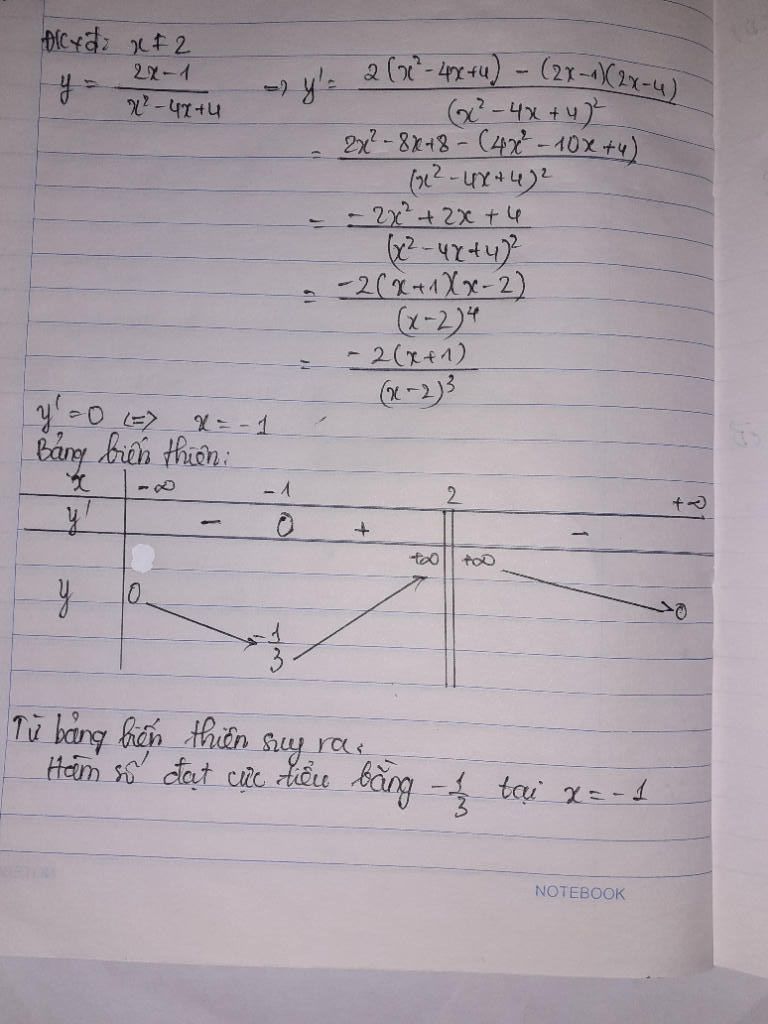 ĐKxđ: x ≠ 2
y = (2x-1)/(x²-4x+4) => y' = (2(x²-4x+4) - (2x-1)(2x-4))/(x²-4x+4)²
= (2x²-8x+8-(4x²-10x+4))/(x²-4x+4)²
= (-2x²+2x+4)/(x²-4x+4)²
= (-2(x+1)(x-2))/(x-2)⁴
= (-2(x+1))/(x-2)³
y'=0 <=> x = -1
Bảng biến thiên:
x -∞ -1 2 +∞
y' - 0 + -
+∞ +∞
y 0 -1/3 0
Từ bảng biến thiên suy ra:
Hàm số đạt cực tiểu bằng -1/3 tại x = -1
NOTEBOOK